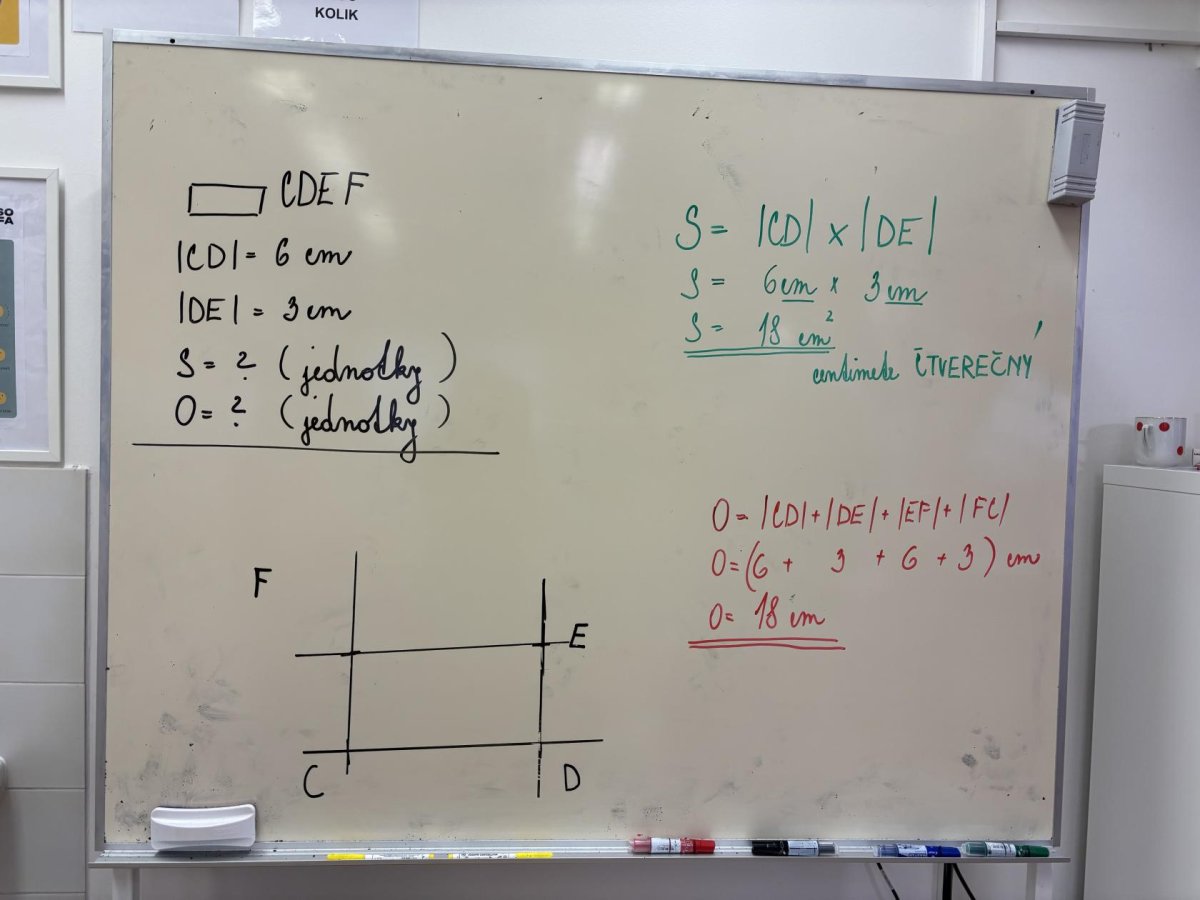 KOLIK
SO
FA
CDEF
|CD| = 6 cm
|DE| = 3 cm
S = ? (jednotky)
O = ? (jednotky)
F
E
C
D
S = |CD| x |DE|
S = 6cm x 3cm
S = 18 cm²
centimetr ČTVEREČNÝ
O = |CD| + |DE| + |EF| + |FC|
O = (6 + 3 + 6 + 3) cm
O = 18 cm